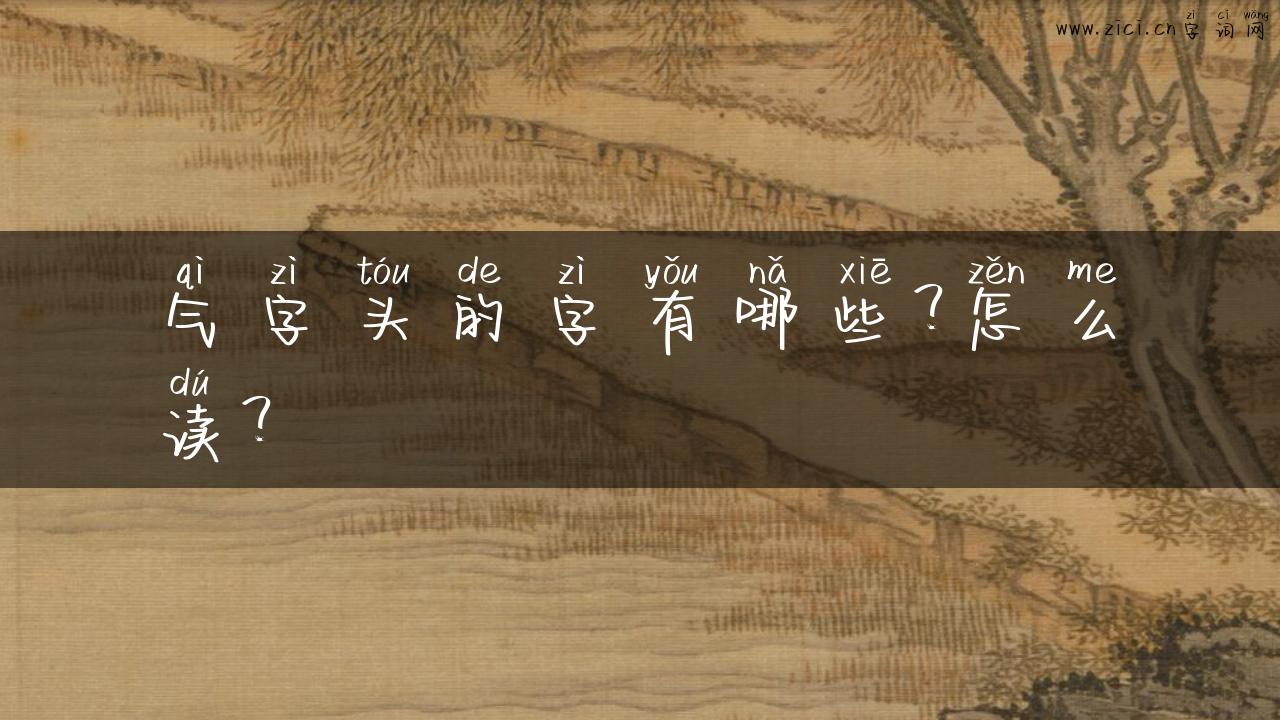 zì cí wǎng
www.zici.cn字词网
qì zì tóu de zì yǒu nǎ xiē zěn me
气字头的字有哪些？怎么
dú
读？